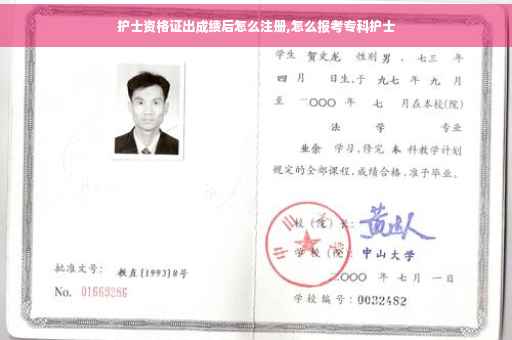 护士资格证出成绩后怎么注册,怎么报考专科护士
学生 贺文龙 性别 男 、七三 年
四 月 日生,于 九七 年 九 月
至 二〇〇〇 年 七 月在本校(院)
法 学 专业
业余 学习,修完 本 科教学计划
规定的全部课程,成绩合格,准予毕业。
校(院)长:
学校(院): 中山大学
二〇〇〇 年 七 月 一 日
批准文号: 教直[1993]8号
No. 01669286
学校编号: 0032482